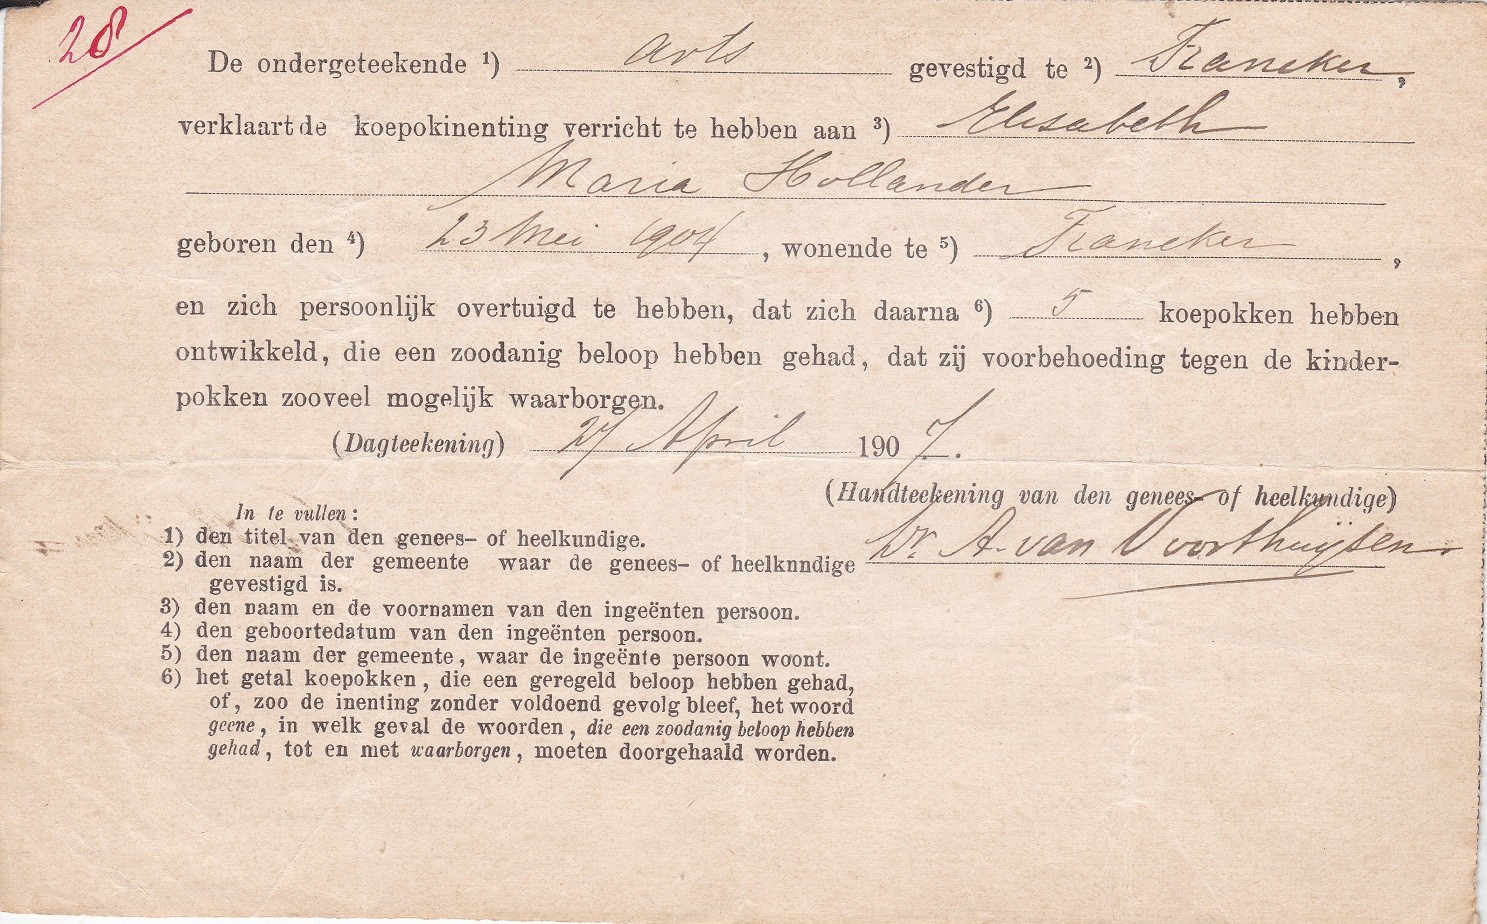 28
De ondergeteekende 1) arts gevestigd te 2) Franeker,
verklaart de koepokinenting verricht te hebben aan 3) Elisabeth
Maria Hollander
geboren den 4) 23 Mei 1904, wonende te 5) Franeker,
en zich persoonlijk overtuigd te hebben, dat zich daarna 6) 5 koepokken hebben
ontwikkeld, die een zoodanig beloop hebben gehad, dat zij voorbehoeding tegen de kinder-
pokken zooveel mogelijk waarborgen.
(Dagteekening) 27 April 1907.
(Handteekening van den genees- of heelkundige)
Dr. A. van Voorthuijsen.
In te vullen:
1) den titel van den genees- of heelkundige.
2) den naam der gemeente waar de genees- of heelknndige
gevestigd is.
3) den naam en de voornamen van den ingeënten persoon.
4) den geboortedatum van den ingeënten persoon.
5) den naam der gemeente, waar de ingeënte persoon woont.
6) het getal koepokken, die een geregeld beloop hebben gehad,
of, zoo de inenting zonder voldoend gevolg bleef, het woord
geene, in welk geval de woorden, die een zoodanig beloop hebben
gehad, tot en met waarborgen, moeten doorgehaald worden.